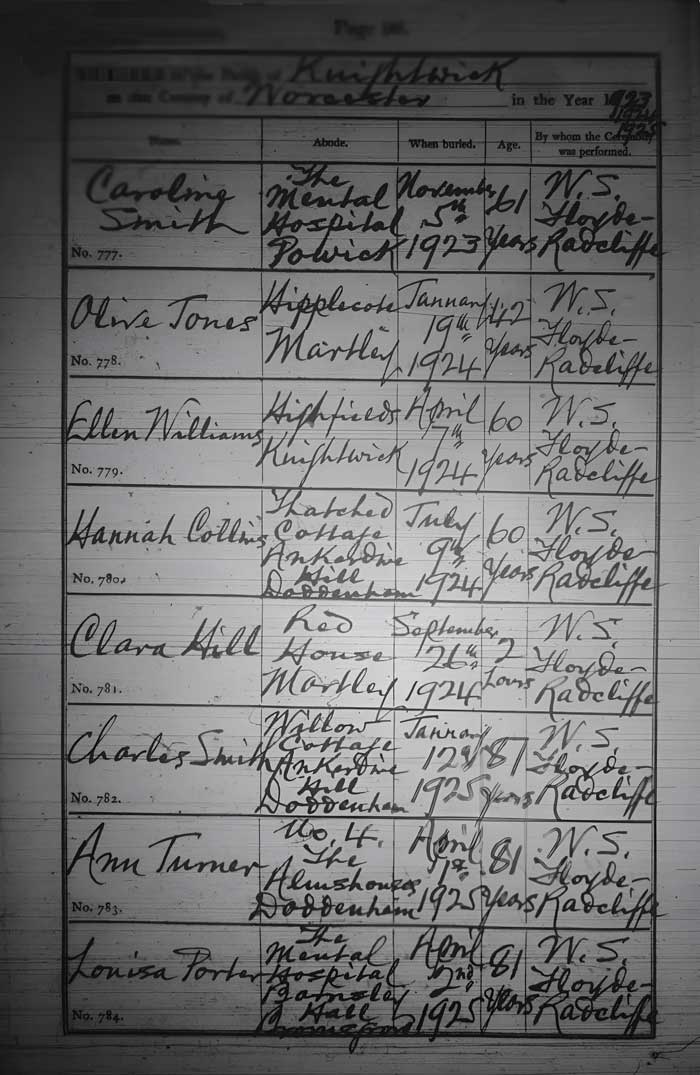 Page
Knightwick
in the County of Worcester in the Year 1923
1924
1925
Name. Abode. When buried. Age. By whom the Ceremony was performed.
Caroline The November 61 W.S.
Smith Mental 5th Years Floyde-
Hospital 1923 Radcliffe
No. 777. Powick
Olive Jones Hipplecote January 42 W.S.
Martley 19th Years Floyde-
No. 778. 1924 Radcliffe
Ellen Williams Highfields April 60 W.S.
Knightwick 7th Years Floyde-
No. 779. 1924 Radcliffe
Hannah Collins Thatched July 60 W.S.
Cottage 9th Years Floyde-
Ankerdine 1924 Radcliffe
Hill
No. 780. Doddenham
Clara Hill Red September 2 W.S.
House 26th hours Floyde-
No. 781. Martley 1924 Radcliffe
Charles Smith Willow January 87 W.S.
Cottage 12th years Floyde-
Ankerdine 1925 Radcliffe
Hill
No. 782. Doddenham
Ann Turner No. 4. April 81 W.S.
The 1st Years Floyde-
Almshouses 1925 Radcliffe
No. 783. Doddenham
Louisa Porter The April 81 W.S.
Mental 22nd Years Floyde-
Hospital 1925 Radcliffe
Barnsley
No. 784. Hall
Bromsgrove